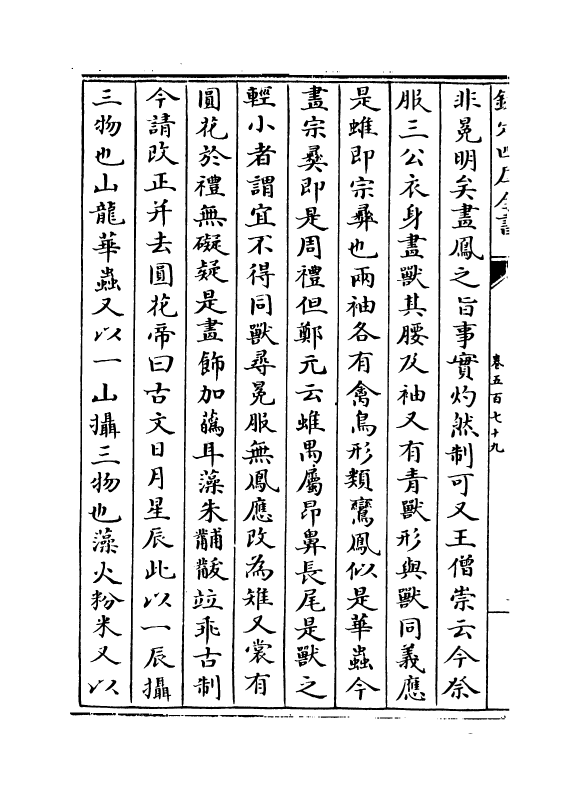 欽定四庫全書
卷五百七十九
非冕明矣畫鳳之旨事實灼然制可又王僧崇云今祭
服三公衣身畫獸其腰及袖又有青獸形與獸同義應
是蜼即宗彞也兩袖各有禽鳥形類鸞鳳似是華蟲今
畫宗彞即是周禮但鄭元云蜼禺屬昂鼻長尾是獸之
輕小者謂宜不得同獸尋冕服無鳳應改為雉又裳有
圓花於禮無礙疑是畫飾加蘤耳藻朱黼黻竝乖古制
今請改正并去圓花帝曰古文日月星辰此以一辰攝
三物也山龍華蟲又以一山攝三物也藻火粉米又以